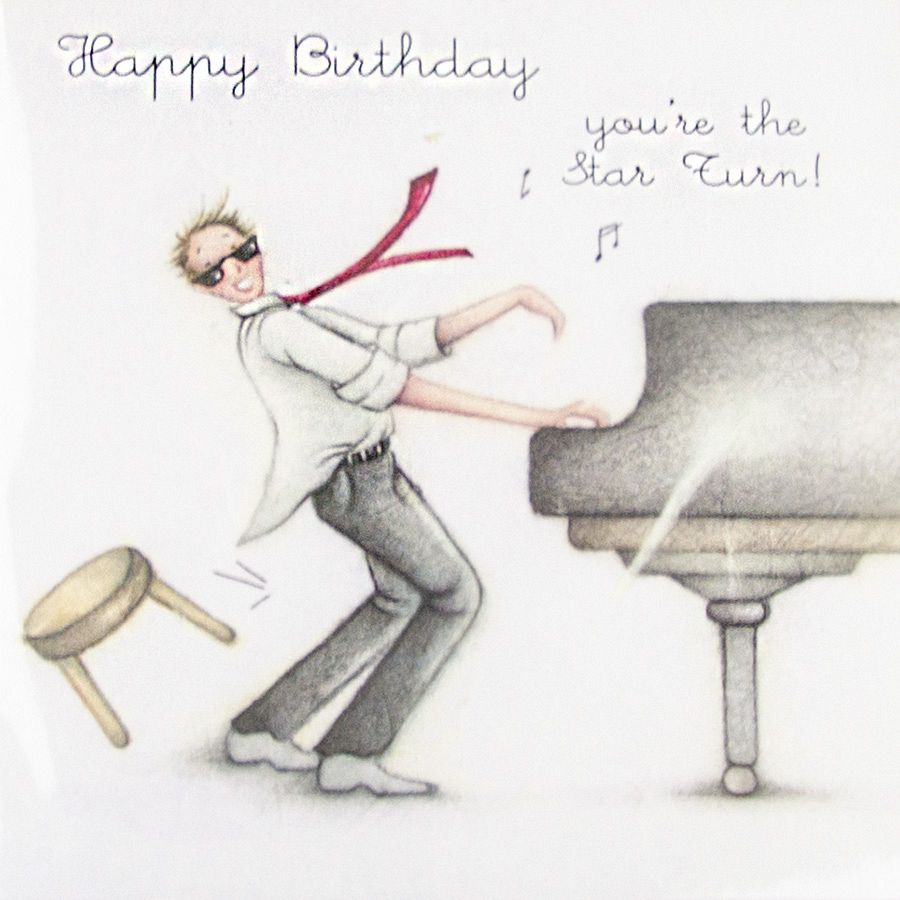 Happy Birthday
you're the
Star Turn!